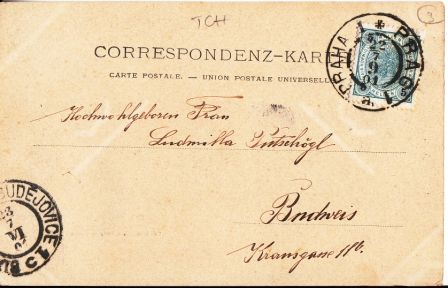 TCH
3
CORRESPONDENZ-KAR
CARTE POSTALE. — UNION POSTALE UNIVERSELLE
PRAG 1
PRAHA 1
Hochwohlgeboren Frau
Ludmilla Gutschögl
Budweis
BUDĚJOVICE 1
VI